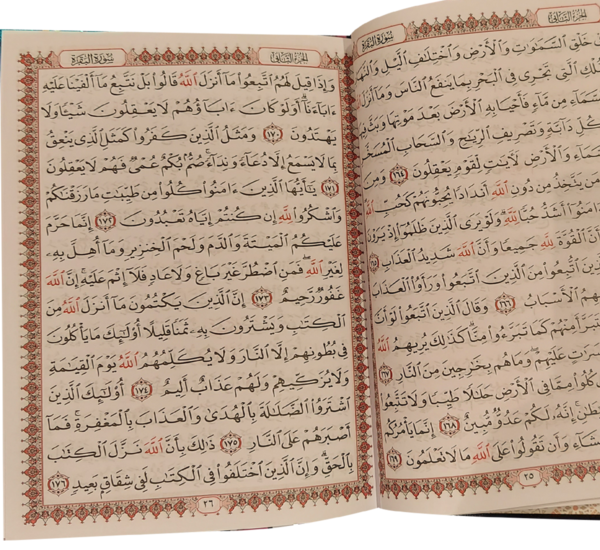 الجزء الثاني سورة البقرة
خَلْقِ ٱلسَّمَٰوَٰتِ وَٱلْأَرْضِ وَٱخْتِلَٰفِ ٱلَّيْلِ وَٱلنَّهَارِ
ٱلَّتِى تَجْرِى فِى ٱلْبَحْرِ بِمَا يَنفَعُ ٱلنَّاسَ وَمَآ أَنزَلَ
مِن مَّآءٍ فَأَحْيَا بِهِ ٱلْأَرْضَ بَعْدَ مَوْتِهَا وَبَثَّ
دَآبَّةٍ وَتَصْرِيفِ ٱلرِّيَٰحِ وَٱلسَّحَابِ ٱلْمُسَخَّرِ
وَٱلْأَرْضِ لَءَايَٰتٍ لِّقَوْمٍ يَعْقِلُونَ ١٦٤ وَمِنَ
مَن يَتَّخِذُ مِن دُونِ ٱللَّهِ أَندَادًا يُحِبُّونَهُمْ كَحُبِّ ٱللَّهِ
أَشَدُّ حُبًّا لِّلَّهِ وَلَوْ يَرَى ٱلَّذِينَ ظَلَمُوٓا۟ إِذْ يَرَوْنَ
أَنَّ ٱلْقُوَّةَ لِلَّهِ جَمِيعًا وَأَنَّ ٱللَّهَ شَدِيدُ ٱلْعَذَابِ ١٦٥
ٱلَّذِينَ ٱتُّبِعُوا۟ مِنَ ٱلَّذِينَ ٱتَّبَعُوا۟ وَرَأَوُا۟ ٱلْعَذَابَ
ٱلْأَسْبَابُ ١٦٦ وَقَالَ ٱلَّذِينَ ٱتَّبَعُوا۟ لَوْ أَنَّ
مِنْهُمْ كَمَا تَبَرَّءُوا۟ مِنَّا كَذَٰلِكَ يُرِيهِمُ ٱللَّهُ
عَلَيْهِمْ وَمَا هُم بِخَٰرِجِينَ مِنَ ٱلنَّارِ ١٦٧
كُلُوا۟ مِمَّا فِى ٱلْأَرْضِ حَلَٰلًا طَيِّبًا وَلَا تَتَّبِعُوا۟
إِنَّهُۥ لَكُمْ عَدُوٌّ مُّبِينٌ ١٦٨ إِنَّمَا يَأْمُرُكُم
وَأَن تَقُولُوا۟ عَلَى ٱللَّهِ مَا لَا تَعْلَمُونَ ١٦٩
٢٥
الجزء الثاني سورة البقرة
وَإِذَا قِيلَ لَهُمُ ٱتَّبِعُوا۟ مَآ أَنزَلَ ٱللَّهُ قَالُوا۟ بَلْ نَتَّبِعُ مَآ أَلْفَيْنَا عَلَيْهِ
ءَابَآءَنَآ أَوَلَوْ كَانَ ءَابَآؤُهُمْ لَا يَعْقِلُونَ شَيْـًٔا وَلَا
يَهْتَدُونَ ١٧٠ وَمَثَلُ ٱلَّذِينَ كَفَرُوا۟ كَمَثَلِ ٱلَّذِى يَنْعِقُ
بِمَا لَا يَسْمَعُ إِلَّا دُعَآءً وَنِدَآءً صُمٌّۢ بُكْمٌ عُمْىٌ فَهُمْ لَا يَعْقِلُونَ
١٧١ يَٰٓأَيُّهَا ٱلَّذِينَ ءَامَنُوا۟ كُلُوا۟ مِن طَيِّبَٰتِ مَا رَزَقْنَٰكُمْ
وَٱشْكُرُوا۟ لِلَّهِ إِن كُنتُمْ إِيَّاهُ تَعْبُدُونَ ١٧٢ إِنَّمَا حَرَّمَ
عَلَيْكُمُ ٱلْمَيْتَةَ وَٱلدَّمَ وَلَحْمَ ٱلْخِنزِيرِ وَمَآ أُهِلَّ بِهِۦ
لِغَيْرِ ٱللَّهِ فَمَنِ ٱضْطُرَّ غَيْرَ بَاغٍ وَلَا عَادٍ فَلَآ إِثْمَ عَلَيْهِ إِنَّ ٱللَّهَ
غَفُورٌ رَّحِيمٌ ١٧٣ إِنَّ ٱلَّذِينَ يَكْتُمُونَ مَآ أَنزَلَ ٱللَّهُ مِنَ
ٱلْكِتَٰبِ وَيَشْتَرُونَ بِهِۦ ثَمَنًا قَلِيلًا أُو۟لَٰٓئِكَ مَا يَأْكُلُونَ
فِى بُطُونِهِمْ إِلَّا ٱلنَّارَ وَلَا يُكَلِّمُهُمُ ٱللَّهُ يَوْمَ ٱلْقِيَٰمَةِ
وَلَا يُزَكِّيهِمْ وَلَهُمْ عَذَابٌ أَلِيمٌ ١٧٤ أُو۟لَٰٓئِكَ ٱلَّذِينَ
ٱشْتَرَوُا۟ ٱلضَّلَٰلَةَ بِٱلْهُدَىٰ وَٱلْعَذَابَ بِٱلْمَغْفِرَةِ فَمَآ
أَصْبَرَهُمْ عَلَى ٱلنَّارِ ١٧٥ ذَٰلِكَ بِأَنَّ ٱللَّهَ نَزَّلَ ٱلْكِتَٰبَ
بِٱلْحَقِّ وَإِنَّ ٱلَّذِينَ ٱخْتَلَفُوا۟ فِى ٱلْكِتَٰبِ لَفِى شِقَاقٍۭ بَعِيدٍ ١٧٦
٢٦